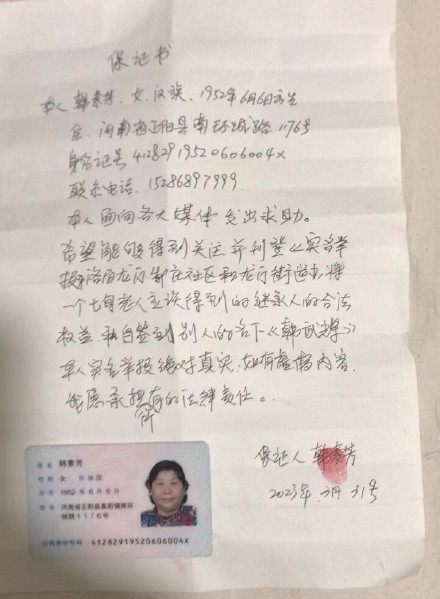 保证书
本人韩素芳、女、汉族、1952年6月6日出生
住、河南省正阳县南环城路1176号
身份证号41282919520606004X
联系电话、15286897999.
本人面向各大媒体发出求助。
希望能够得到关注并刊登《实名举
报洛阳龙门 社区和龙门街道办将
一个七旬老人应该得到的继承人的合法
权益私自签到别人的名下《韩武 》
本人实名举报绝对真实、如有虚假内容、
我愿承担所有的法律责任。
保证人 韩素芳
2023年.3月31号
姓名 韩素芳
性别 女 民族 汉
出生 1952年6月6日
住址 河南省正阳县真阳镇南环
城路1176号
公民身份号码 41282919520606004X